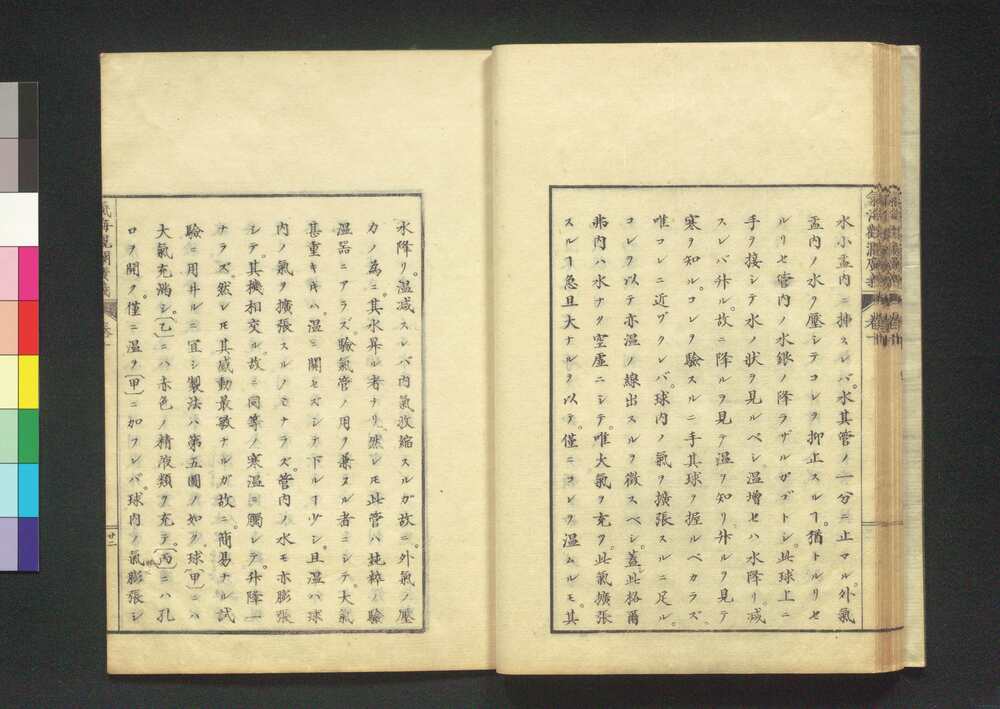 水小盂内ニ挿スレバ。水其管ノ一分ニ止マル。外氣
盂内ノ水ヲ壓シテコレヲ抑止スルヿ。猶トルリセ
ルリセ管内ノ水銀ノ降ラザルガゴトシ。此球上ニ
手ヲ接シテ水ノ状ヲ見ルベシ。温増セハ水降リ。減
スレバ升ル。故ニ降ルヲ見テ温ヲ知リ升ルヲ見テ
寒ヲ知ル。コレヲ驗スルニ手其球ヲ握ルベカラズ。
唯コレニ近ヅクレバ。球内ノ氣ヲ擴張スルニ足ル。
コレヲ以テ亦温ノ線出スルヲ徴スベシ。蓋此格爾
弗内ハ水ナク空虚ニシテ。唯大氣ヲ充ツ。此氣擴張
スルヿ急且大ナルヲ以テ。僅ニコレヲ温ムルモ。其
水降リ。温減スレバ内氣收縮スルガ故ニ。外氣ノ壓
力ノ為ニ。其水昇ル者ナリ。然レモ此管ハ純粹ノ驗
温器ニアラズ。驗氣管ノ用ヲ兼ヌル者ニシテ。大氣
甚重キキハ。温ニ關セズシテ下ルヿ少シ。且温ハ球
内ノ氣ヲ擴張スルノミナラズ。管内ノ水モ亦膨張
シテ。其機相交ル。故ニ同等ノ寒温ニ觸レテ。升降一
ナラズ。然レモ其感動最敏ナルガ故ニ。簡易ナル試
驗ニ用井ルニ宜シ。製法ハ第五圖ノ如ク。球〔甲〕ニハ
大氣充滿シ。〔乙〕ニハ赤色ノ精液類ヲ充テ。〔丙〕ニハ孔
ロヲ開ク。僅ニ温ヲ〔甲〕ニ加フレバ。球内ノ氣膨張シ
廿二